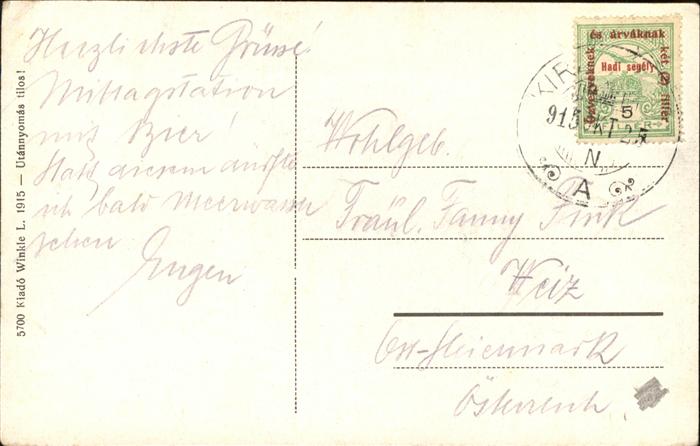 Herzlichste Grüsse!
Mittagstation
mit Bier!
bald Meerwasser
sehen
Eugen
5700 Kiadó Winkle L. 1915 — Utánnyomás tilos!
Özvegyeknek és árváknak két (2) fillér
Hadi segély
5
915 OKT 25
N
A
Wohlgeb.
Fräul. Fanny Fink
Weiz
Ost-Steiermark
Österreich.